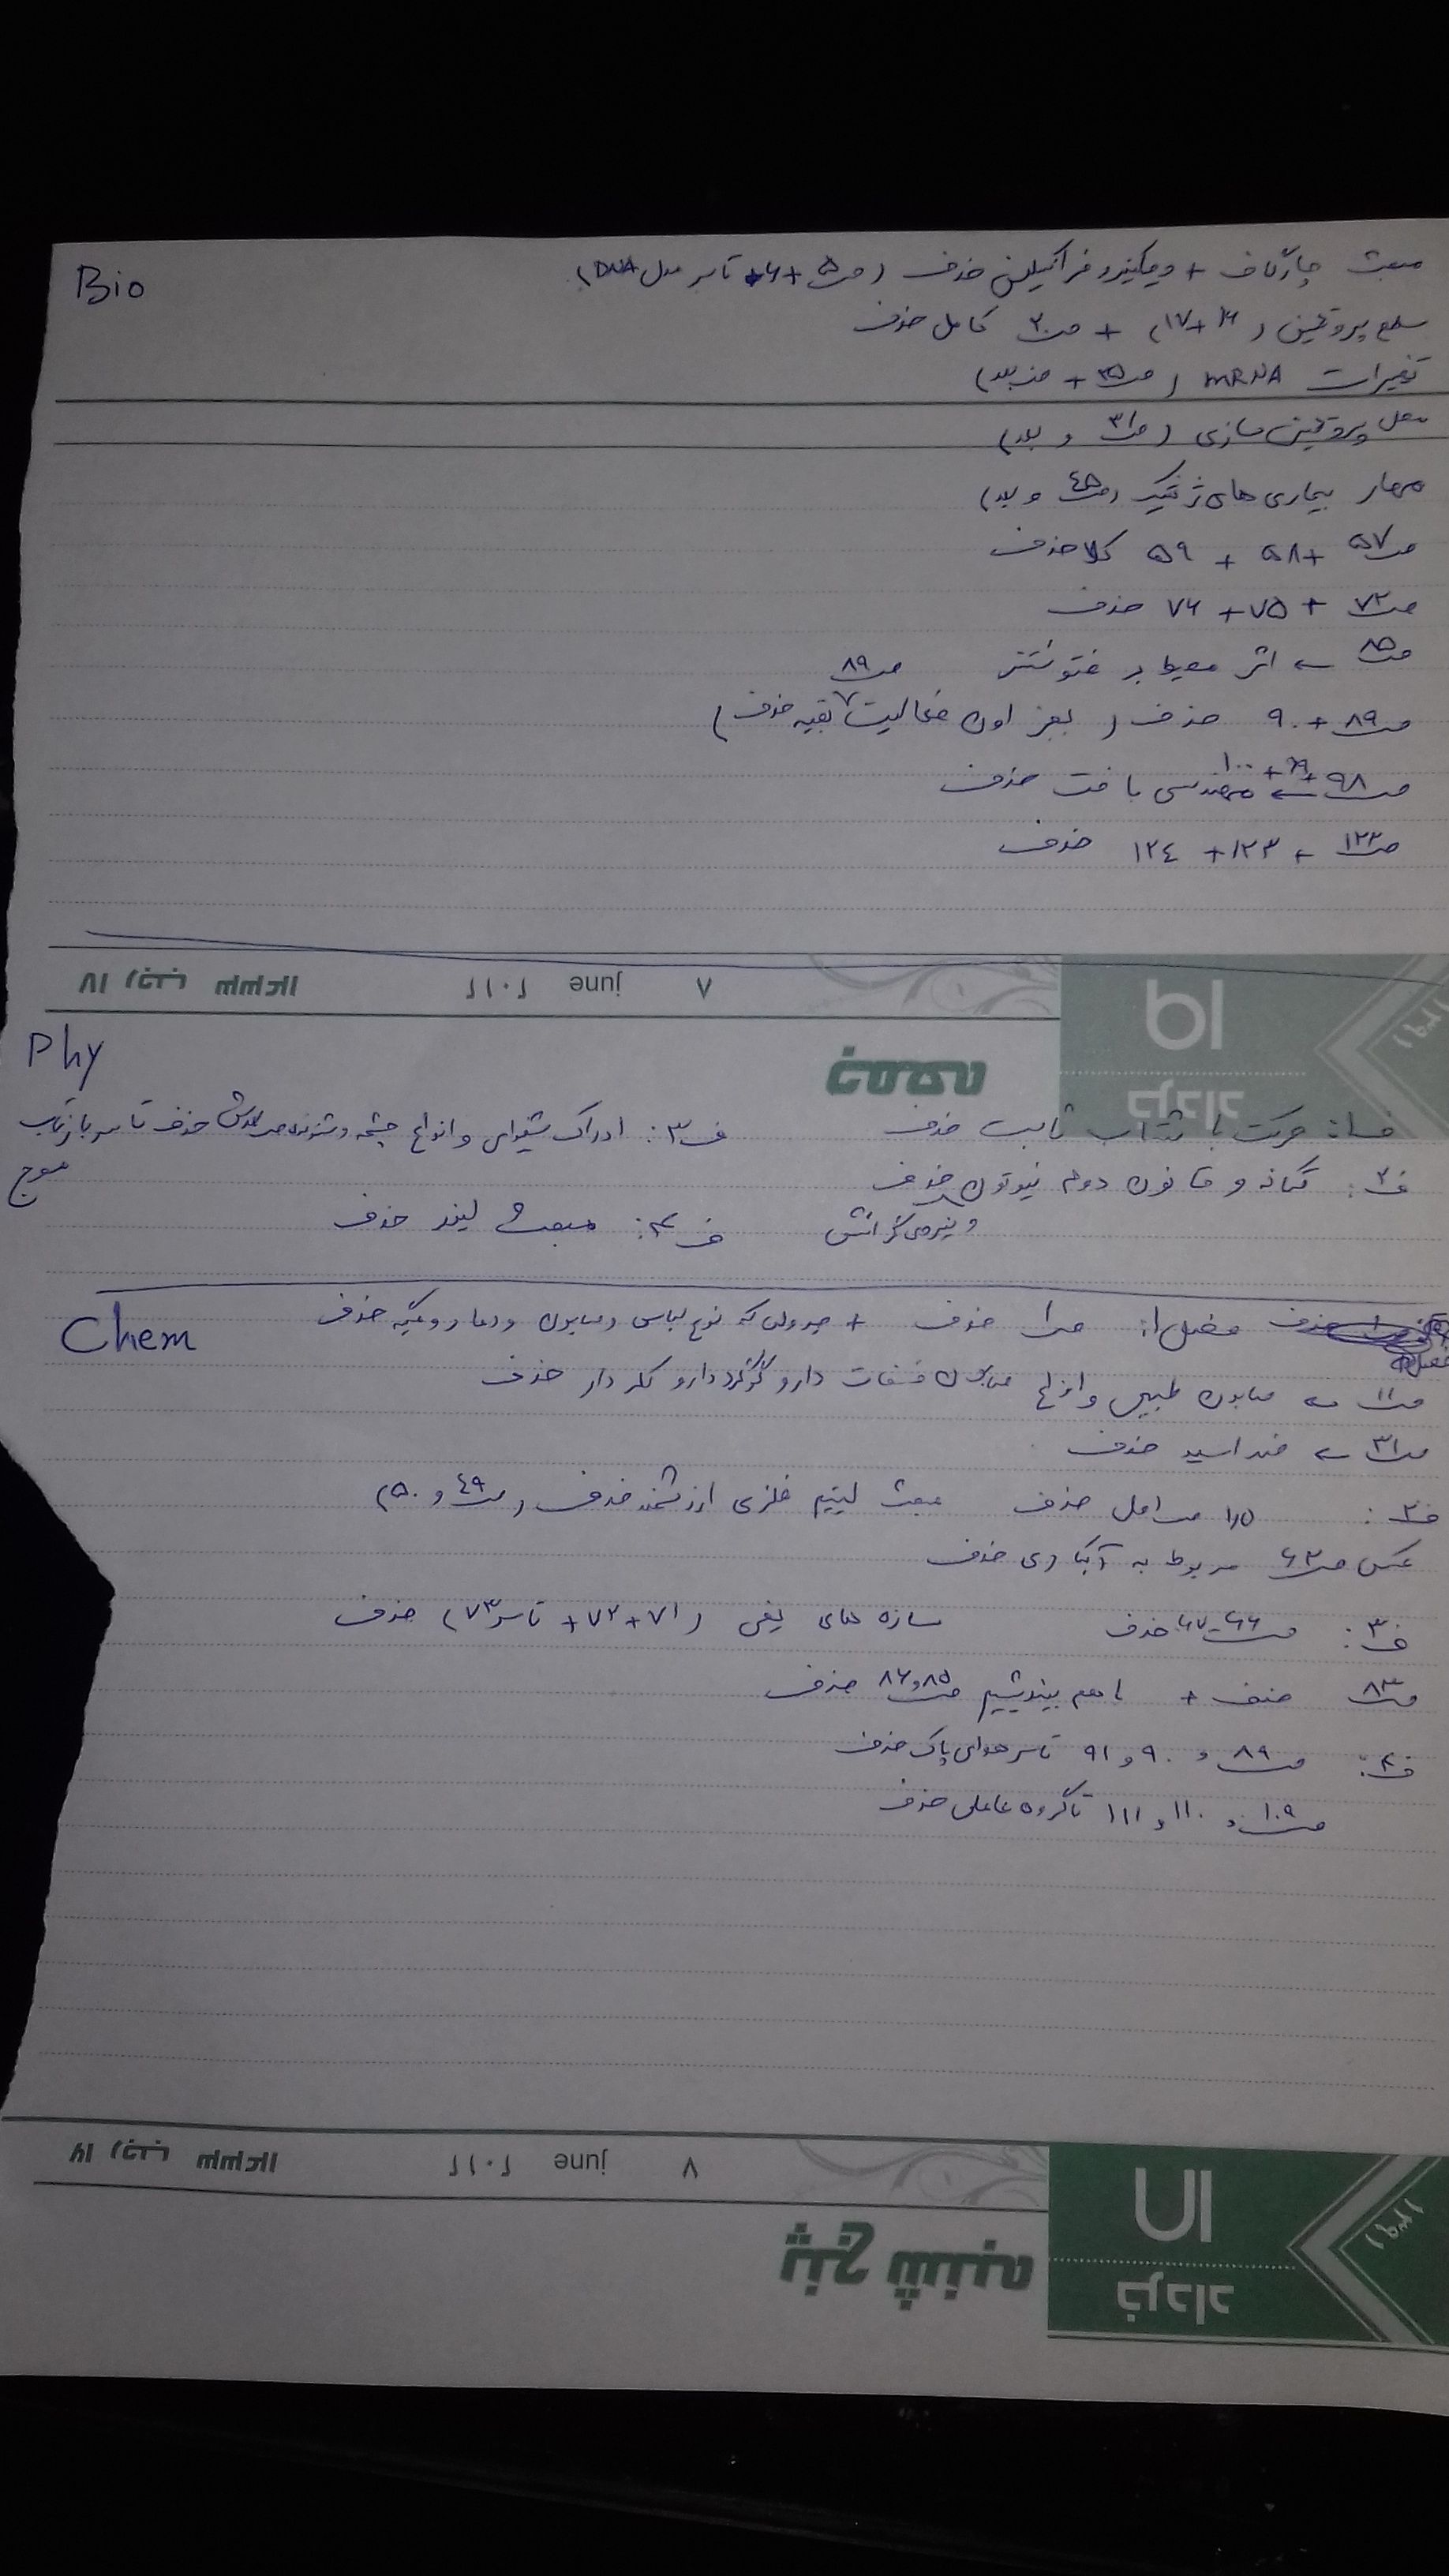 Bio
مبحث چارگاف + ویلکینز و فرانکلین حذف (ص۵ +۶+ تا سر مدل DNA)
سطح پروتئین (۱۶ +۱۷) + ص۲۰ کامل حذف
تغییرات mRNA (ص۲۵ + ص بعد)
محل پروتئین سازی (ص۳۱ و بعد)
مهار بیماری های ژنتیک (ص۴۵ و بعد)
ص۵۷ +۵۸ + ۵۹ کلا حذف
ص۷۲ + ۷۵+ ۷۶ حذف
ص۸۵ ← اثر محیط بر فتوسنتز
ص۸۹ + ۹۰ حذف (بجز اون فعالیت ص۸۹ بقیه حذف)
ص۹۸ +۹۹+ ۱۰۰ ← مهندسی بافت حذف
ص۱۲۲ و ۱۲۳+ ۱۲۴ حذف
۱۷ رجب ۱۴۳۳ ۲۰۱۲ june ۸
۱۹
خرداد
۱۳۹۱
جمعه
Phy
ف۱: حرکت با شتاب ثابت حذف
ف۳: ادراک شنوایی و انواع چشمه و شنونده حذف تا سر بازتاب موج
ف۲: تکانه و قانون دوم نیوتون حذف
و نیروی گرانش
ف۴: مبحث لیزر حذف
Chem
فصل۱: ص۱ حذف + جدولی که نوع لباس و صابون و دما رو میگه حذف
ص۱۱ ← صابون طبیعی و انواع صابون فسفات دار و گوگرد دار و کلر دار حذف
ص۳۱ ← ضد اسید حذف
ف۲: حذف مبحث لیتیم فلزی ارزشمند حذف (ص۴۹ و ۵۰)
عکس ص۶۲ مربوط به آبکاری حذف
ف۳: ص۶۶-۶۷ حذف سازه های یخی (۷۱+۷۲+ تا سر ۷۳) حذف
ص۸۳ حذف + با هم بیندیشیم ص۸۵و۸۶ حذف
ف۴: ص۸۹ و ۹۰ و ۹۱ تا سر هوای پاک حذف
ص۱۰۹ و ۱۱۰ و ۱۱۱ تا گروه عاملی حذف
۱۶ رجب ۱۴۳۳ ۲۰۱۲ june ۷
۱۸
خرداد
۱۳۹۱
پنج شنبه